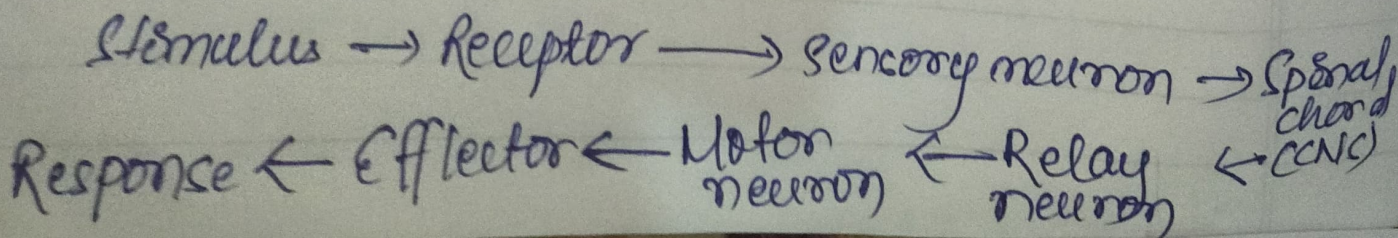 Stimulus → Receptor → Sencory neuron → Spinal
chord
Response ← Efflector ← Motor neuron ← Relay neuron ← (CNS)